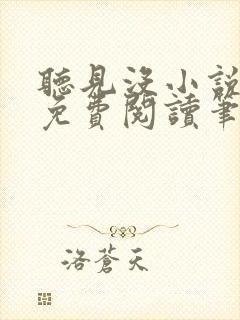 聽見沒小說
免費閱讀筆
洛蒼天